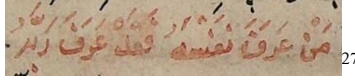 مَنْ عَرَفَ نَفْسَهُ فَقَدْ عَرَفَ رَبَّهُ 27